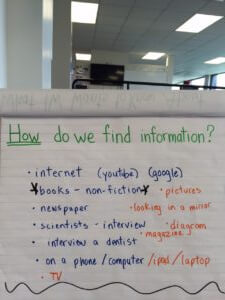 How do we find information?
• internet (youtube) (google)
*books - non-fiction* • pictures
• newspaper • looking in a mirror
• scientists - interview • diagram
• magazine
• interview a dentist
• on a phone/computer/ipad/laptop
• TV